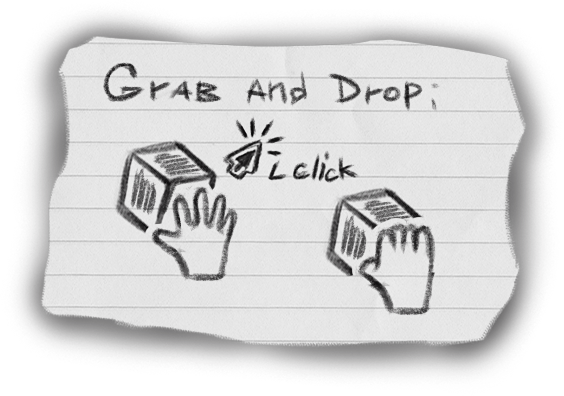 Grab and Drop:
click